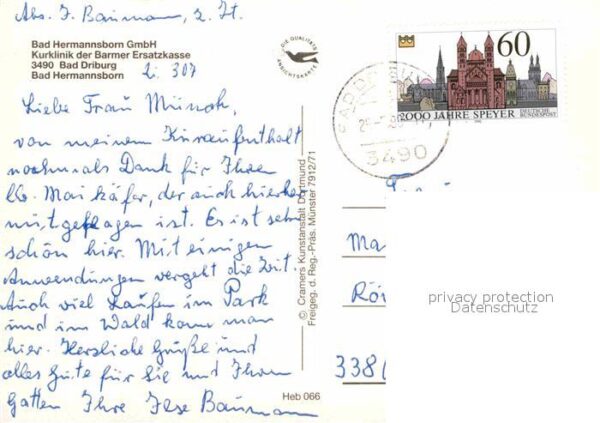 Abs. I. Baumann, z. Zt.
Bad Hermannsborn GmbH
Kurklinik der Barmer Ersatzkasse
3490 Bad Driburg
Bad Hermannsborn
Zi. 307
DIE QUALITÄTS ANSICHTSKARTE
60
2000 JAHRE SPEYER
DEUTSCHE BUNDESPOST
3490
Liebe Frau Munch,
von meinem Kuraufenthalt
nochmals Dank für Ihren
lb. Maikäfer, der auch hierher
mitgeflogen ist. Es ist sehr
schön hier. Mit einigen
Anwendungen vergeht die Zeit.
Auch viel Laufen im Park
und im Wald kann man
hier. Herzliche Grüße und
alles Gute für Sie und Ihren
Gatten Ihre Ilse Baumann
© Cramers Kunstanstalt Dortmund
Freigeg. d. Reg.-Präs. Münster 7912/71
Heb 066
Ma
Rö
338
privacy protection
Datenschutz